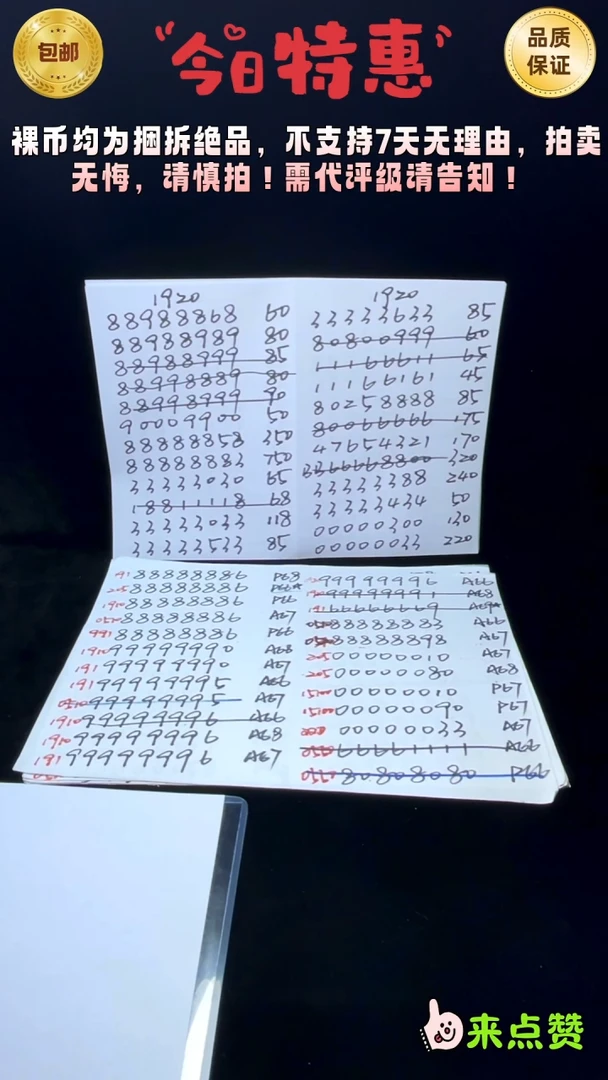 包邮
今日特惠
品质
保证
裸币均为捆拆绝品，不支持7天无理由，拍卖
无悔，请慎拍！需代评级请告知！
1920
88988868 60
88988989 80
88988999 85
88998889 80
88998999 90
90009900 50
88888858 350
88888883 750
33333030 65
18811118 68
33333033 118
33333533 85
1920
33333633 85
80800999 60
11166611 65
11166161 45
80258888 85
80066666 175
47654321 170
3366668800 320
33333388 240
33333434 50
00000300 130
00000033 220
191 88888886 P68
205 88888886 P66*
1910 88888886 P66
0510 88888886 A67
991 88888886 P66
1910 99999990 A68
191 99999990 A67
191 99999995 A66
0510 99999995 A67
1910 99999996 A66
1910 99999996 A68
191 99999996 A67
99999996 A66
1910 99999991 A68
191 66666669 A69*
88888883 A66
88888898 A67
205 00000010 A67
205 00000080 A68
15100 00000010 P67
15100 00000090 P67
00000033 A67
0510 66661111 A66
0510 80808080 P66
来点赞